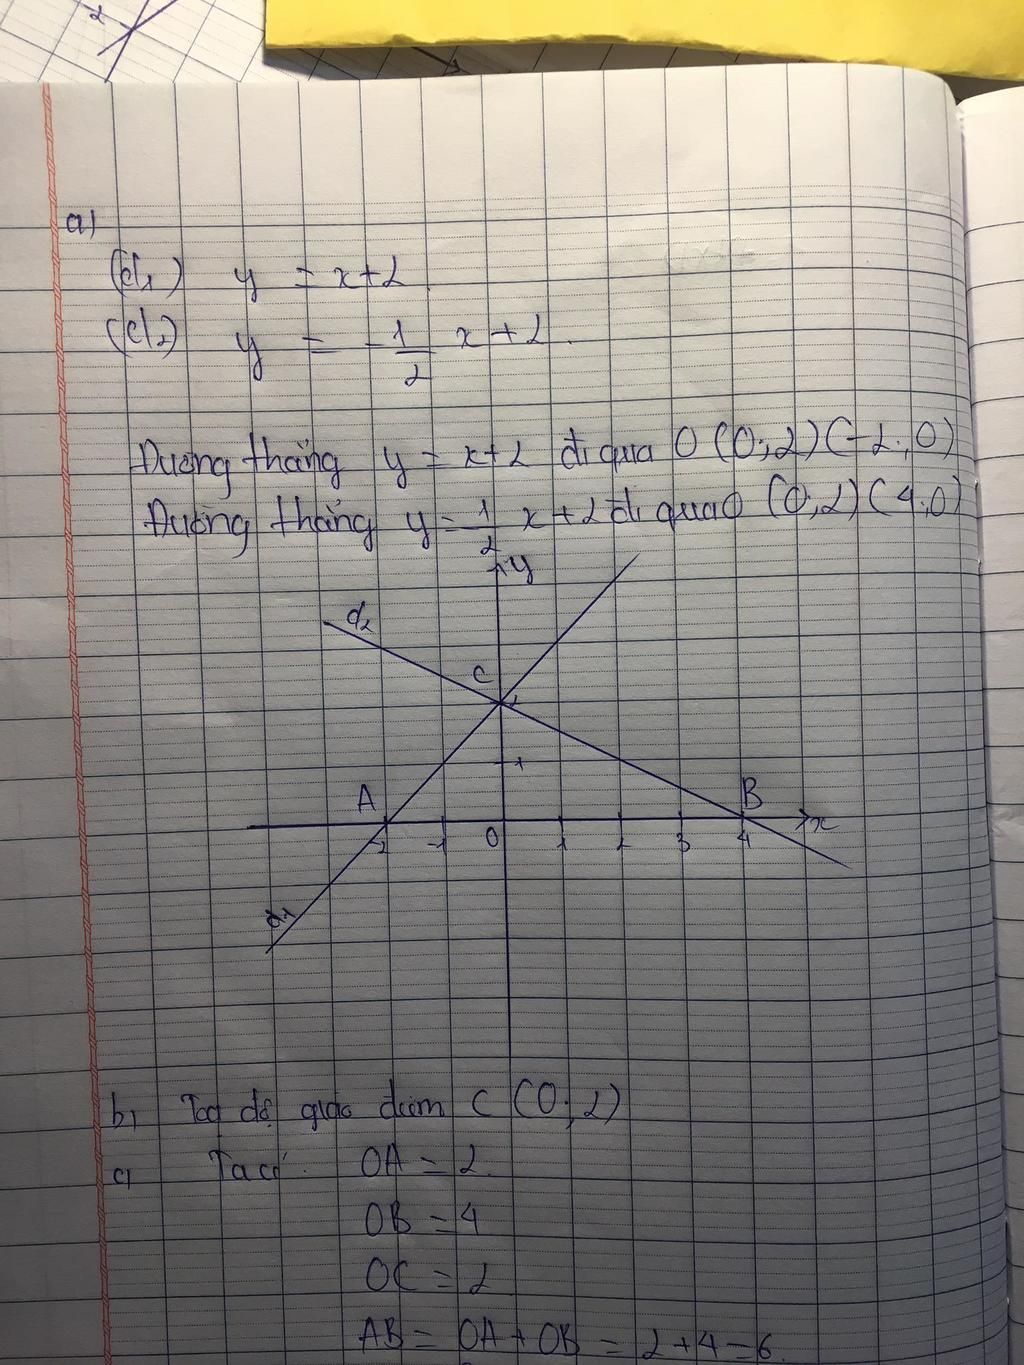 2
a)
(d1) y = x+2
(d2) y = -1/2 x+2
Đường thẳng y = x+2 đi qua O (0;2) (-2;0)
Đường thẳng y = 1/2 x+2 đi qua O (0;2) (4;0)
y
d2
C
2
1
A B
x
-2 -1 0 1 2 3 4
d1
b) Toạ độ giao điểm C (0;2)
c) Ta có: OA = 2
OB = 4
OC = 2
AB = OA + OB = 2+4=6